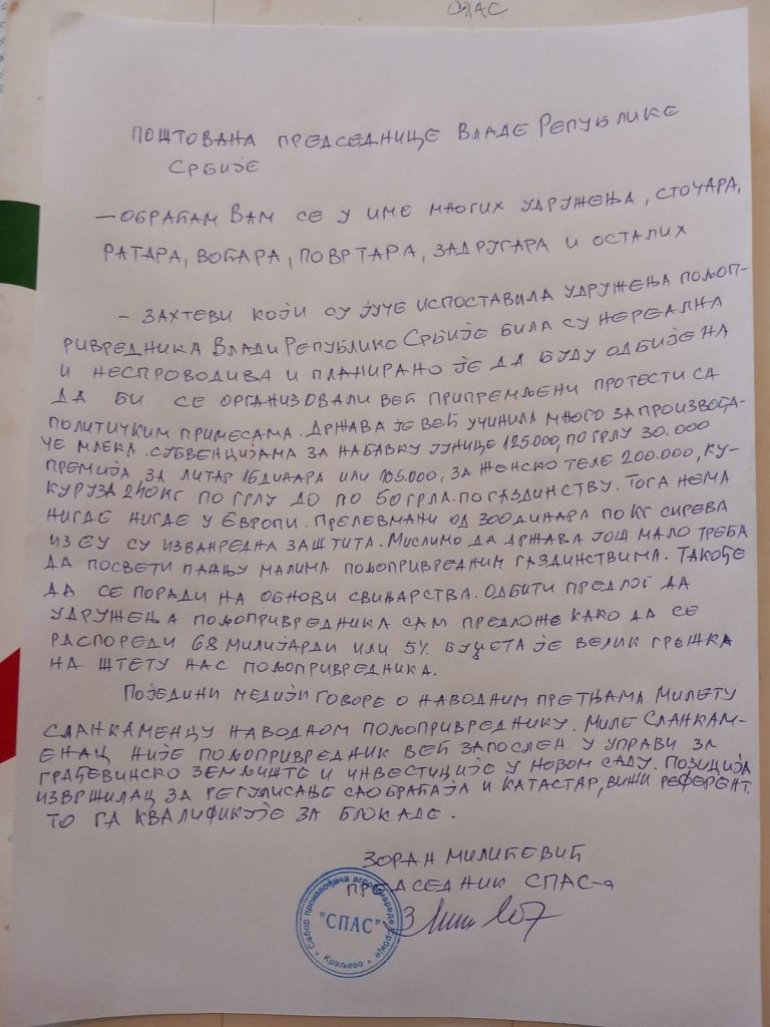 СПАС
ПОШТОВАНА ПРЕДСЕДНИЦЕ ВЛАДЕ РЕПУБЛИКЕ
СРБИЈЕ
— ОБРАЋАМ ВАМ СЕ У ИМЕ МНОГИХ УДРУЖЕЊА, СТОЧАРА,
РАТАРА, ВОЋАРА, ПОВРТАРА, ЗАДРУГАРА И ОСТАЛИХ
— ЗАХТЕВИ КОЈИ СУ ЈУЧЕ ИСПОСТАВИЛА УДРУЖЕЊА ПОЉОП-
РИВРЕДНИКА ВЛАДИ РЕПУБЛИКО СРБИЈЕ БИЛА СУ НЕРЕАЛНА
И НЕСПРОВОДИВА И ПЛАНИРАНО ЈЕ ДА БУДУ ОДБИЈЕНА
ДА БИ СЕ ОРГАНИЗОВАЛИ ВЕЋ ПРИПРЕМЉЕНИ ПРОТЕСТИ СА
ПОЛИТИЧКИМ ПРИМЕСАМА. ДРЖАВА ЈЕ ВЕЋ УЧИНИЛА МНОГО ЗА ПРОИЗВОЂА-
ЧЕ МЛЕКА. СУБВЕНЦИЈАМА ЗА НАБАВКУ ЈУНИЦЕ 125.000, ПО ГРЛУ 30.000
ПРЕМИЈА ЗА ЛИТАР 15 ДИНАРА ИЛИ 105.000, ЗА ЖЕНСКО ТЕЛЕ 200.000, КУ-
КУРУЗА 240 КГ ПО ГРЛУ ДО ПО 50 ГРЛА. ПО ГАЗДИНСТВУ. ТОГА НЕМА
НИГДЕ НИГДЕ У ЕВРОПИ. ПРЕЛЕВМАНИ ОД 300 ДИНАРА ПО КГ СИРЕВА
ИЗ ЕУ СУ ИЗВАНРЕДНА ЗАШТИТА. МИСЛИМО ДА ДРЖАВА ЈОШ МАЛО ТРЕБА
ДА ПОСВЕТИ ПАЖЊУ МАЛИМА ПОЉОПРИВРЕДНИМ ГАЗДИНСТВИМА. ТАКОЂЕ
ДА СЕ ПОРАДИ НА ОБНОВИ СВИЊАРСТВА. ОДБИТИ ПРЕДЛОГ ДА
УДРУЖЕЊА ПОЉОПРИВРЕДНИКА САМ ПРЕДЛОЖЕ КАКО ДА СЕ
РАСПОРЕДИ 68 МИЛИЈАРДИ ИЛИ 5% БУЏЕТА ЈЕ ВЕЛИК ГРЕШКА
НА ШТЕТУ НАС ПОЉОПРИВРЕДНИКА.
ПОЈЕДИНИ МЕДИЈИ ГОВОРЕ О НАВОДНИМ ПРЕТЊАМА МИЛЕТУ
СЛАНКАМЕНЦУ НАВОДНОМ ПОЉОПРИВРЕДНИКУ. МИЛЕ СЛАНКАМ-
ЕНАЦ НИЈЕ ПОЉОПРИВРЕДНИК ВЕЋ ЗАПОСЛЕН У УПРАВИ ЗА
ГРАЂЕВИНСКО ЗЕМЉИШТЕ И ИНВЕСТИЦИЈЕ У НОВОМ САДУ. ПОЗИЦИЈА
ИЗВРШИЛАЦ ЗА РЕГУЛИСАЊЕ САОБРАЋАЈА И КАТАСТАР, ВИШИ РЕФЕРЕНТ.
ТО ГА КВАЛИФИКУЈЕ ЗА БЛОКАДЕ.
ЗОРАН МИЛИЋЕВИЋ
ПРЕДСЕДНИК СПАС-а
Сабор произвођача агропривреде Србије
"СПАС"
Краљево